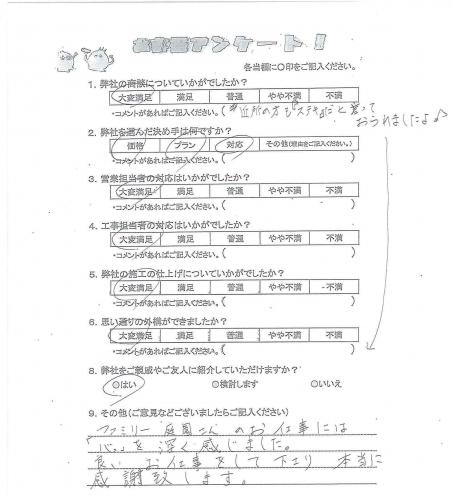 お客様アンケート!
各当欄に○印をご記入ください。
1. 弊社の商談についていかがでしたか?
大変満足 満足 普通 やや不満 不満
・コメントがあればご記入ください。( 近所の方も"ステキ"だと言って
おられましたよ♪
2. 弊社を選んだ決め手は何ですか?
価格 プラン 対応 その他(理由をご記入ください。)
・コメントがあればご記入ください。(
3. 営業担当者の対応はいかがでしたか?
大変満足 満足 普通 やや不満 不満
・コメントがあればご記入ください。(
4. 工事担当者の対応はいかがでしたか?
大変満足 満足 普通 やや不満 不満
・コメントがあればご記入ください。(
5. 弊社の施工の仕上げについていかがでしたか?
大変満足 満足 普通 やや不満 不満
・コメントがあればご記入ください。(
6. 思い通りの外構ができましたか?
大変満足 満足 普通 やや不満 不満
・コメントがあればご記入ください。(
8. 弊社をご親戚やご友人に紹介していただけますか?
○はい ○検討します ○いいえ
9. その他(ご意見などございましたらご記入ください)
ファミリー庭園さんのお仕事には
"心"を深く感じました。
良いお仕事をして下さり 本当に
感謝致します。